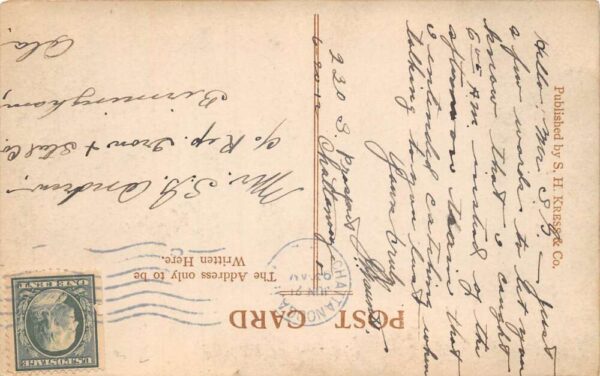 Published by S. H. KRESS & Co.
POST CARD
The Address only to be
Written Here.
U.S. POSTAGE
ONE CENT
CHATTANOOGA
JUN 21
Hello, Mr S. D. — Just
a few words to let you
know that I caught
6 05 A.M. instead of the
afternoon train that
I intended catching
talking to you last when
Yours truly
230 S. Prospect
Chattanooga
Mr. S. D.
c/o Rep. Iron & Steel Co.
Birmingham,
Ala.